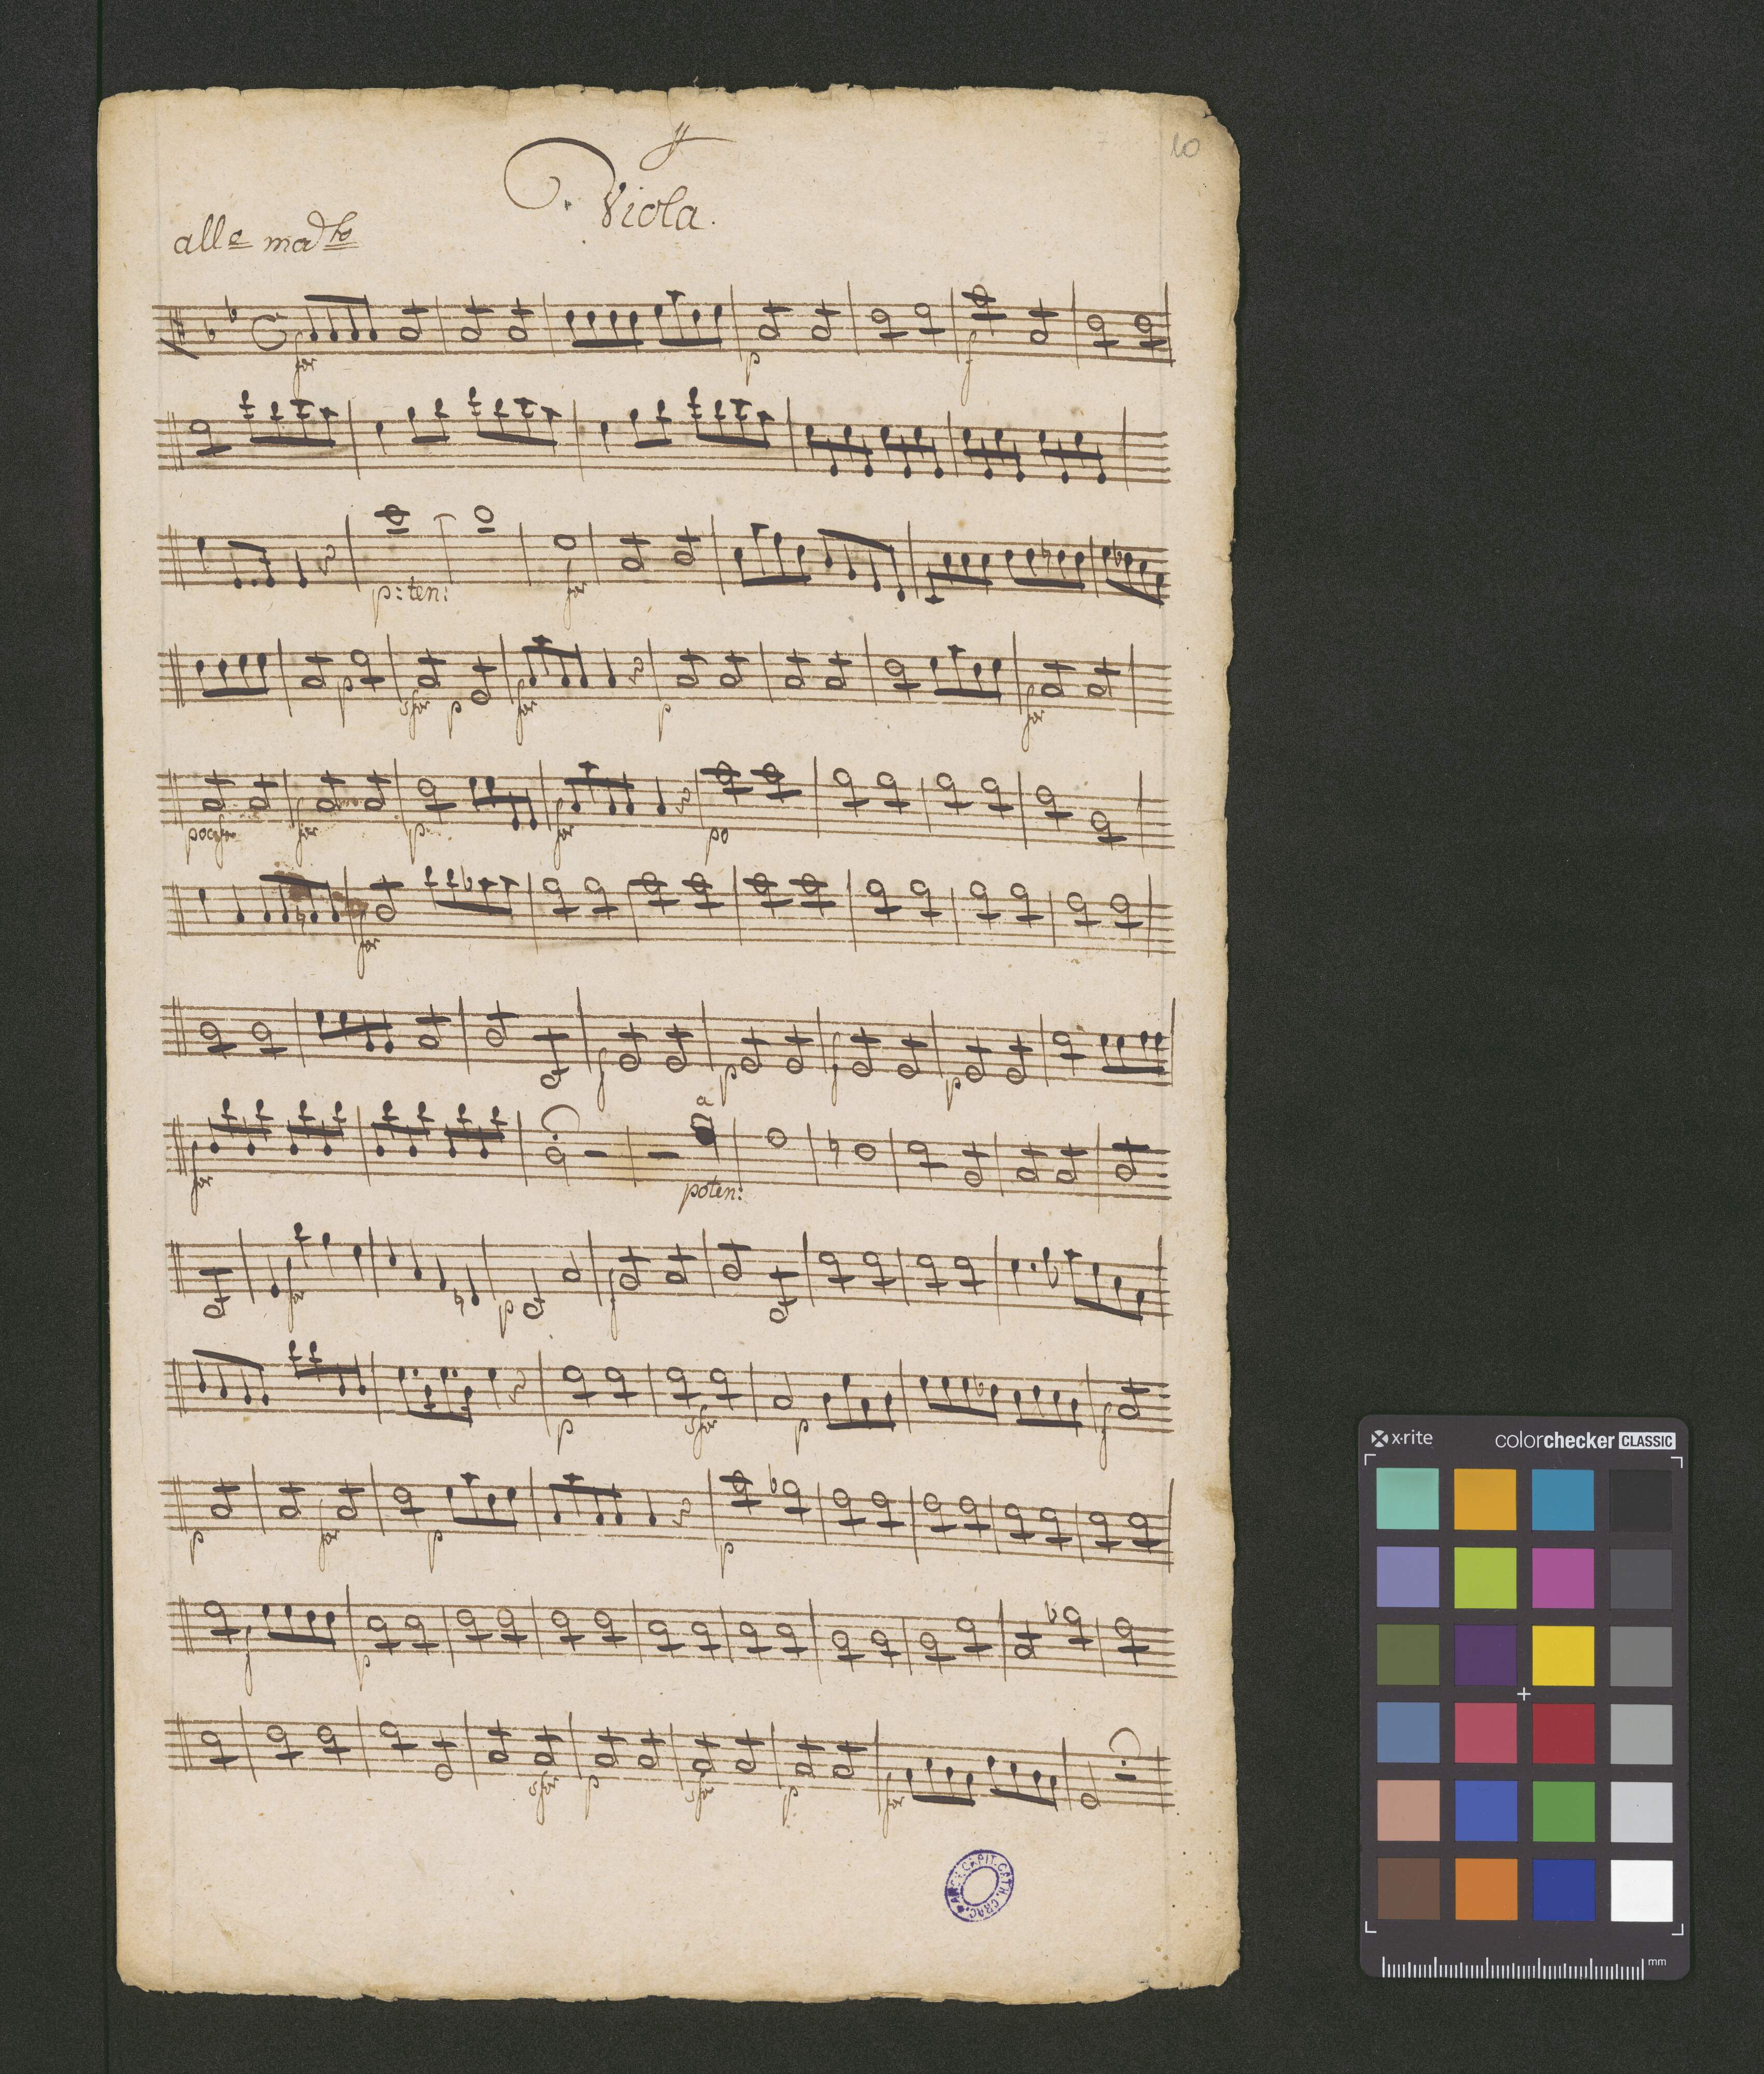 10
Viola.
all:o mod:to
for p f
p: ten: for
p sfor p for p for
poc for for p for po
for
f p f p
for a poten:
for p f
p sfor p f
p for p p
f p
sfor p sfor p for
ARCH. CAPIT. CATH. CRAC.
x·rite colorchecker CLASSIC
mm